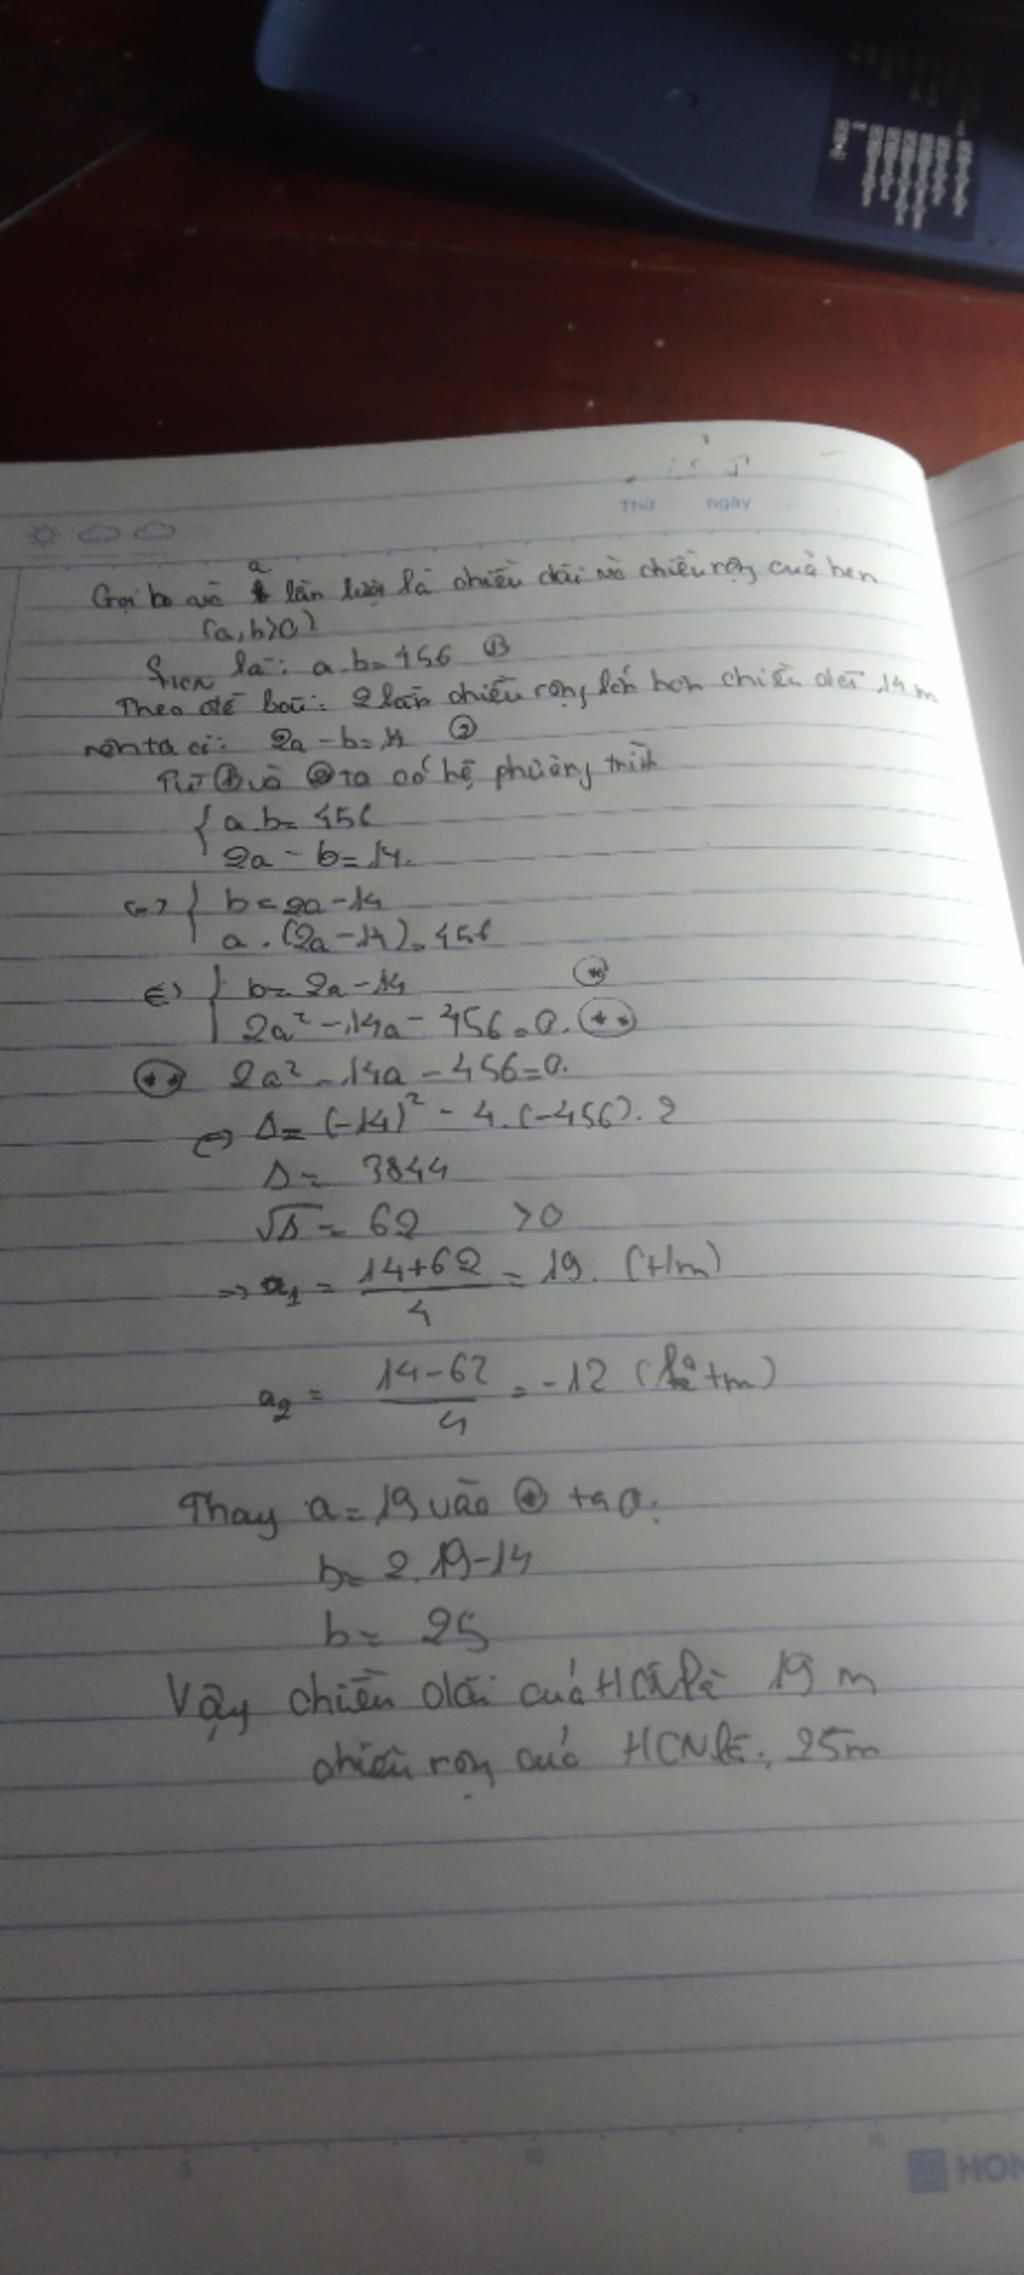 Thứ ngày
Gọi b và a lần lượt là chiều dài và chiều rộng của hcn
(a, b>0)
SHCN là: a.b=456 ①
Theo đề bài: 2 lần chiều rộng lớn hơn chiều dài 14 m
nên ta có: 2a-b=14 ②
Từ ① và ② ta có hệ phương trình
{ a.b=456
2a-b=14.
<=> { b=2a-14
a.(2a-14)=456
<=> { b=2a-14 (*)
2a²-14a-456=0. (**)
(**) 2a²-14a-456=0.
<=> Δ=(-14)²-4.(-456).2
Δ= 3844
√Δ= 62 >0
=> a₁ = (14+62)/4 = 19. (t/m)
a₂ = (14-62)/4 = -12 (ko t/m)
Thay a=19 vào (*) ta có:
b=2.19-14
b= 25
Vậy chiều dài của HCN là 19 m
chiều rộng của HCN là: 25m
5 10 15
HON